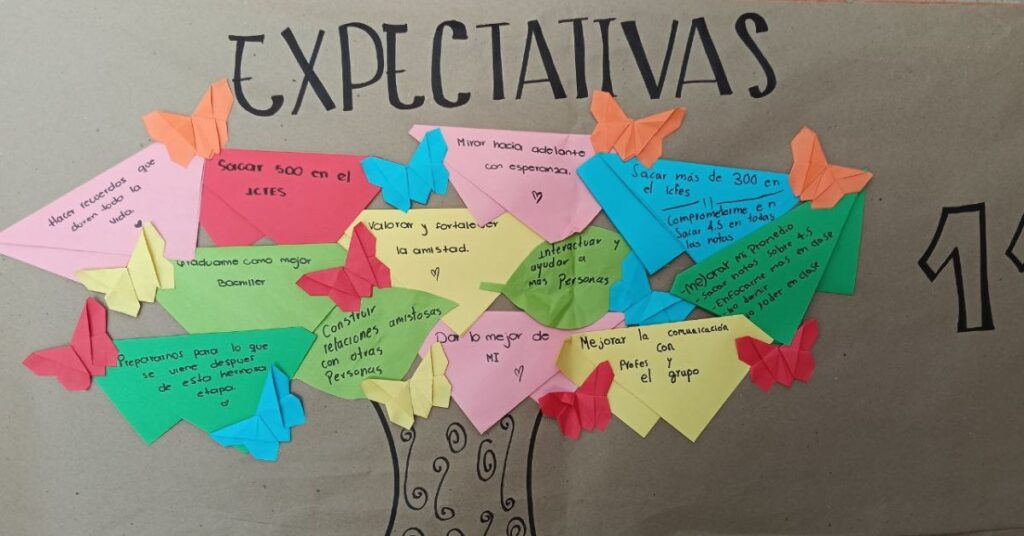 EXPECTATIVAS
Hacer recuerdos que
duren todo la
vida.
Sacar 500 en el
ICFES
Mirar hacia adelante
con esperanza.
Sacar más de 300 en
el Icfes
Comprometerme en
Sacar 4.5 en todas
las notas
Valorar y fortalecer
la amistad.
Interactuar y
ayudar a
más Personas
-Mejorar Mi Promedio
- Sacar notas sobre 4.5
- Enfocarme mas en clase
dormir
joder en clase
Graduarme como mejor
Bachiller
Construir
relaciones amistosas
con otras
Personas
Dar lo mejor de
MI
Mejorar la comunicación
con
Profes y
el grupo
Prepararnos para lo que
se viene despues
de esta hermosa
etapa.